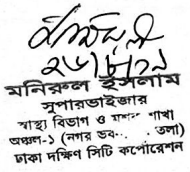 ২৬/৮/২১
মনিরুল ইসলাম
সুপারভাইজার
স্বাস্থ্য বিভাগ ও শাখা
অঞ্চল-১ (নগর তলা)
ঢাকা দক্ষিণ সিটি কর্পোরেশন